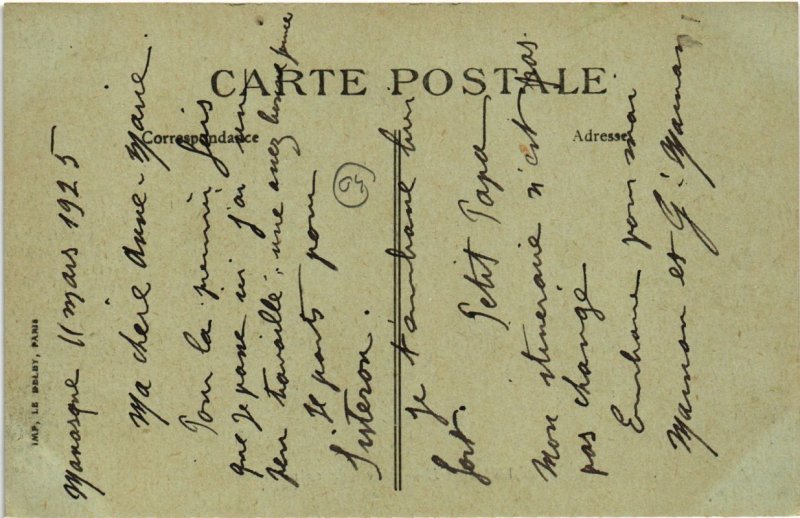 CARTE POSTALE
Correspondance
Adresse
IMP. LE DELEY, PARIS
Manosque 11 mars 1925
Ma chère Anne-Marie.
Pour la premier fois
que je passe ici j'ai un
peu travaillé; une assez bonne prise
Je parts pour
Sisteron.
95
Je t'embrasse bien
fort.
Petit Papa
Mon itineraire n'est pas
pas changé
Embrasse pour moi
Maman et G. Maman